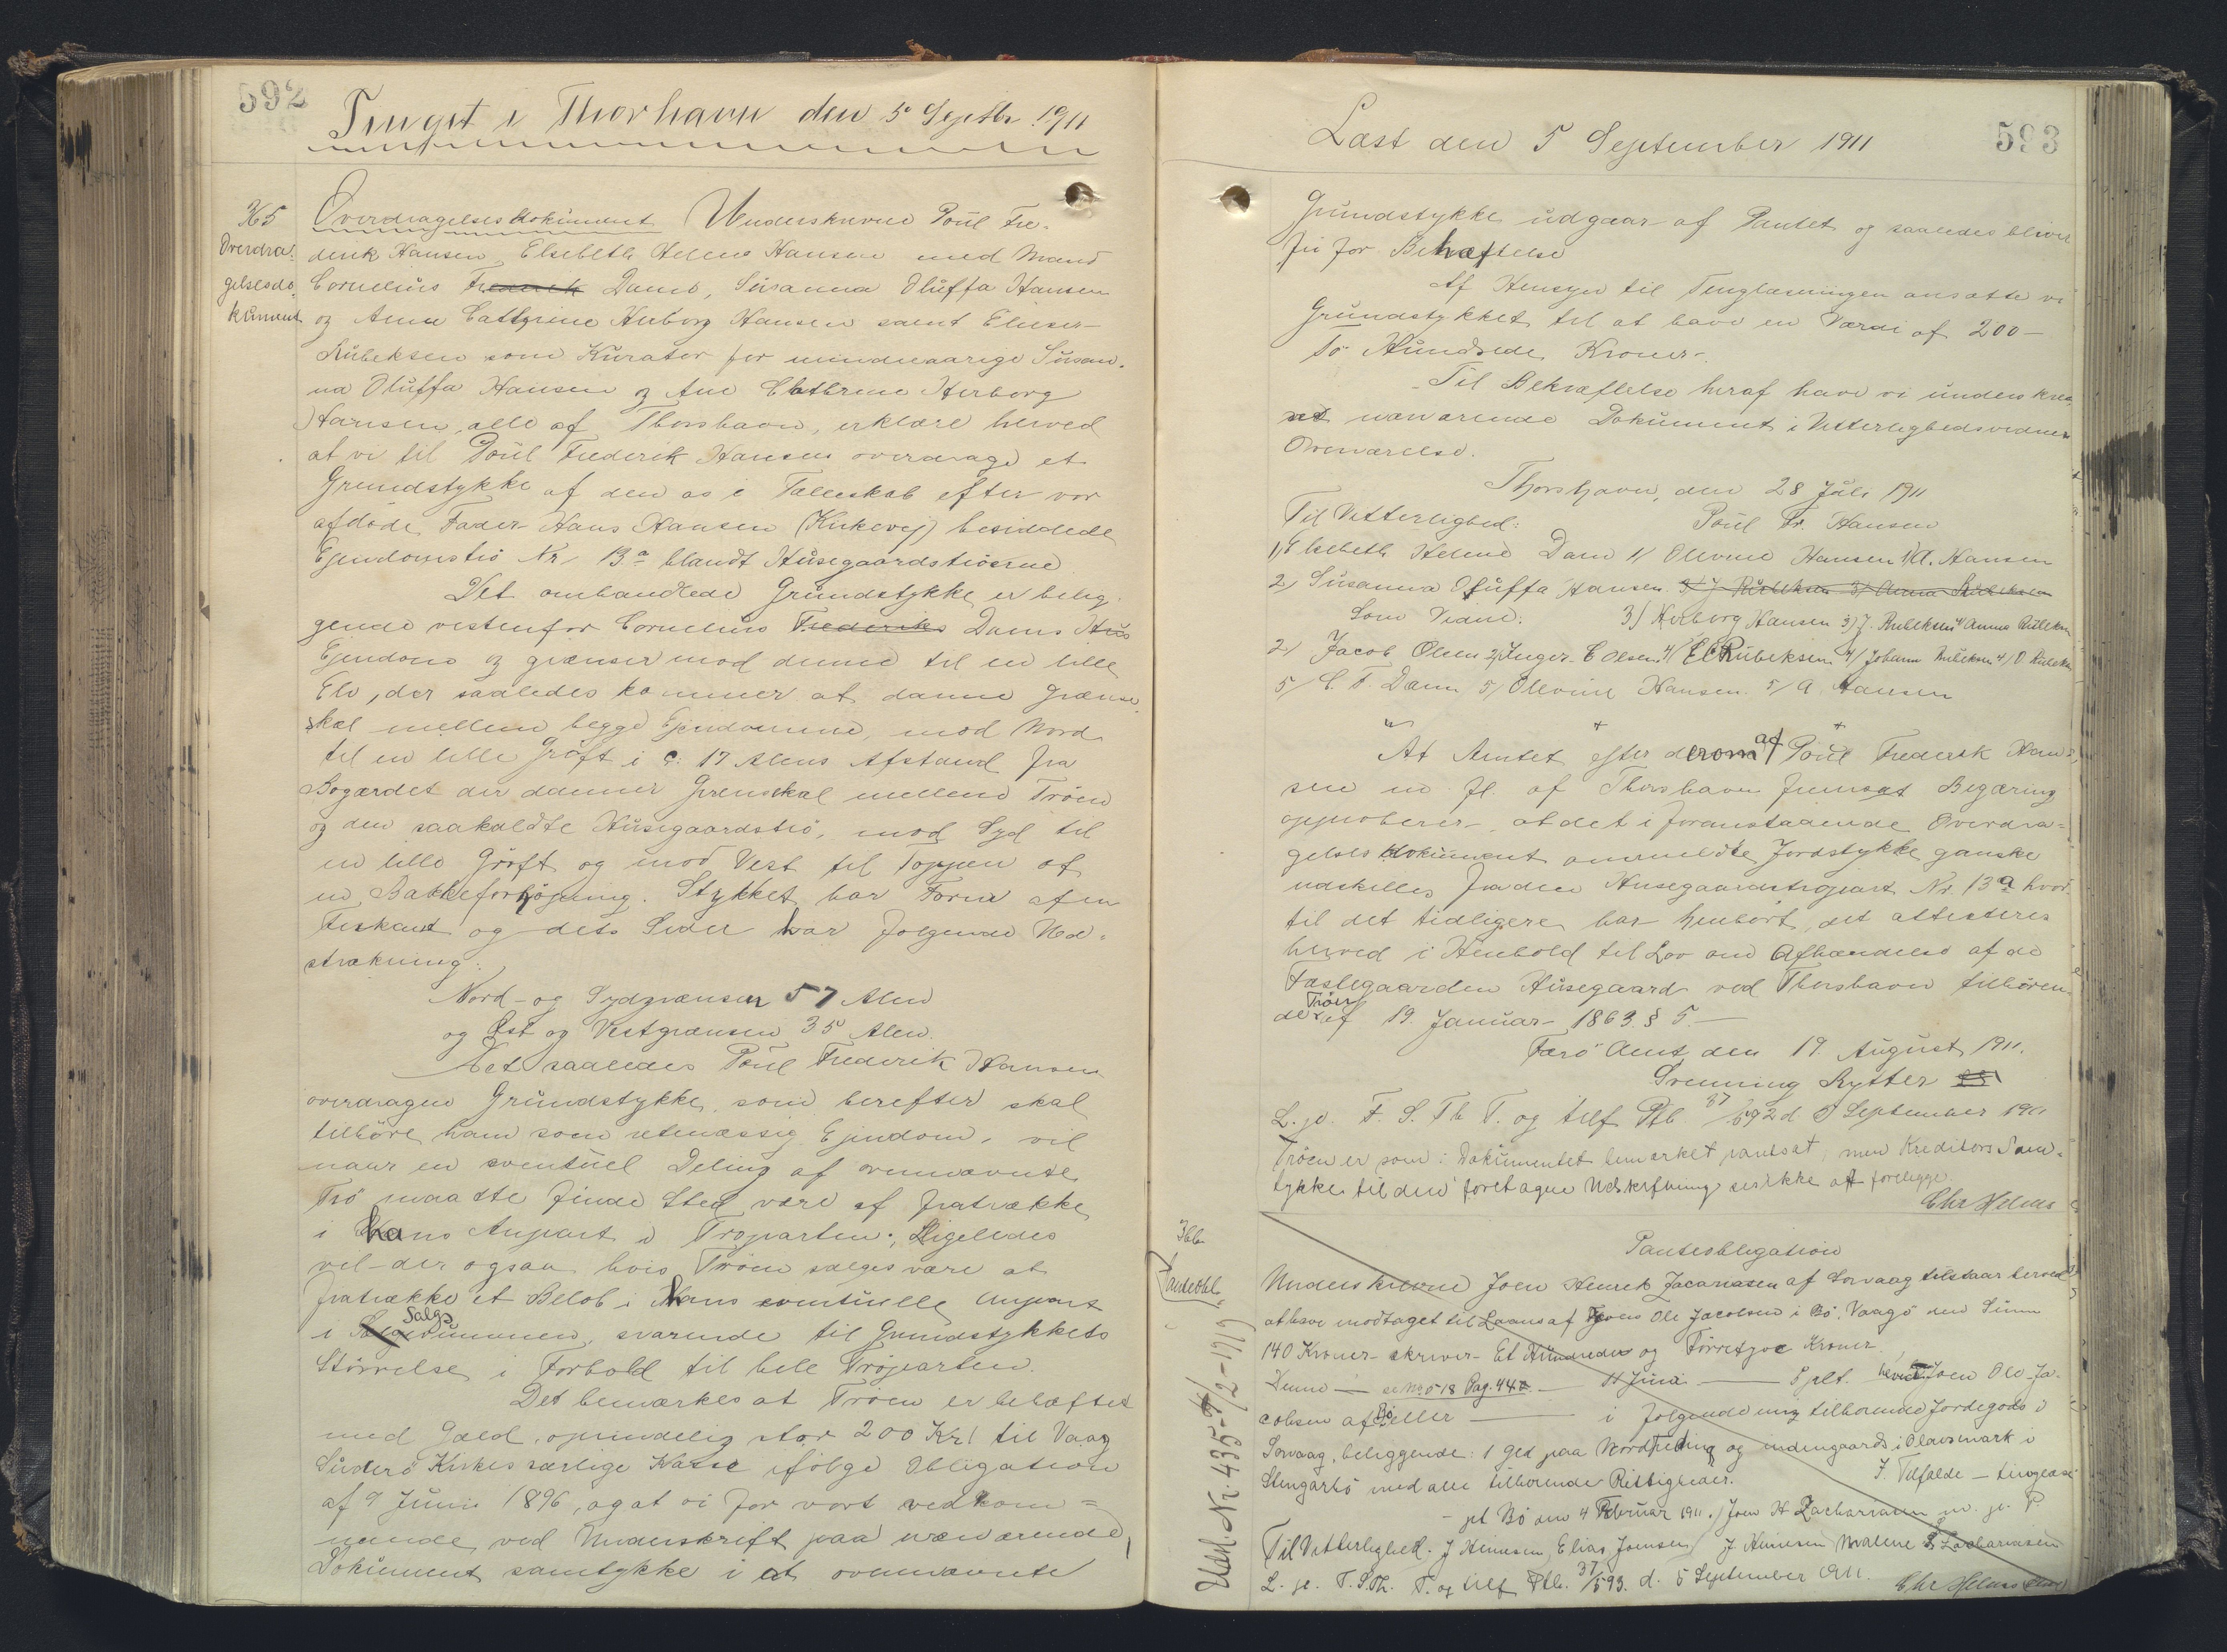 592
Tinget i Thorshavn den 5' Septbr. 1911
365
Overdra-
gelsesdo-
kument
Overdragelsesdokument Underskrevne Poul Fre-
derik Hansen, Elsebeth Helene Hansen med Mand
Cornelius Frederik Dams, Susanna Oluffa Hansen
og Anna Cathrine Herborg Hansen samt Elieser
Rubeksen som Kurator for mindreaarige Susan-
na Oluffa Hansen og Ane Cathrine Herborg
Hansen, alle af Thorshavn, erklære herved
at vi til Poul Frederik Hansen overdrage et
Grundstykke af den os i Fælleskab efter vor
afdøde Fader Hans Hansen (Kirkevej) besiddede
Ejendomstrø Nr. 13a blandt Husegaardstrøerne
Det omhandlede Grundstykke er belig-
gende vestenfor Cornelius Frederiks Dams Hus
Ejendom og grænser mod denne til en lille
Elv, der saaledes kommer at danne Grænse-
skæl mellem begge Ejendomme, mod Nord
til en lille Grøft i c: 17 Alens Afstand fra
Bøgærdet der danner Grænseskæl mellem Trøen
og den saakaldte Husegaardstrø, mod Syd til
en lille Grøft og mod Vest til Toppen af
en Bakkeforhøjning. Stykket har Form af en
Firkant og dets Sider har følgende Ud-
strækning:
Nord- og Sydgrænsen 57 Alen
og Øst og Vestgrænsen 35 Alen.
Det saaledes Poul Frederik Hansen
overdragne Grundstykke, som herefter skal
tilhøre ham som retmæssig Ejendom, vil
naar en eventuel Deling af ovennævnte
Trø maatte finde Sted være at fratrække
i Hans Anpart i Trøparten; Ligeledes
vil der ogsaa hvis Trøen sælges være at
fratrække et Beløb i Hans eventuelle Anpart
i Salgssummen, svarende til Grundstykkets
Størrelse i Forhold til hele Trøparten.
Det bemærkes at Trøen er behæftet
med Gæld, oprindelig stor 200 Kr. til Vaag
Suderø Kirkes særlige Kasse ifølge Obligation
af 9 Juni 1896, og at vi for vort vedkom-
mende ved Underskrift paa nærværende
Dokument samtykke i at ovennævnte
Læst den 5 September 1911
593
Grundstykke udgaar af Pantet og saaledes bliver
fri for Behæftelse
Af Hensyn til Tinglæsningen ansætte vi
Grundstykket til at have en Værdi af 200 —
To Hundrede Kroner.
Til Bekræftelse heraf have vi underskre-
vet nærværende Dokument i Vitterlighedsvidners
Overværelse.
Thorshavn, den 28 Juli 1911
Til Vitterlighed: Poul Fr. Hansen
1) Elsebeth Helene Dam 1) Olevine Hansen 1) A. Hansen
2) Susanna Oluffa Hansen. 3) J. Rubeksen 3) Anna Rubeksen
Som Vidne: 3) Herborg Hansen 3) J. Rubeksen Anna Rubeksen
2) Jacob Olsen 2) Inger C Olsen 4) El Rubeksen 4) Johanna Rubeksen 4) O Rubeksen
5) C. F. Dam 5) Olevine Hansen. 5) A Hansen
At Amtet efter derom af Poul Frederik Han-
sen m. fl. af Thorshavn fremsat Begæring
approberer, at det i foranstaaende Overdra-
gelses dokument ommeldte Jordstykke ganske
udskilles fra den Husegaardstrøpart Nr. 13a hvor-
til det tidligere har henhørt, det attesteres
herved i Henhold til Lov om Afhændelse af de
Fæstegaarden Husegaard ved Thorshavn tilhøren-
de Trøer af 19. Januar 1863 § 5.
Færø Amt, den 19. August 1911.
Svenning Rytter
L. p. F. S. Th T. og tilf Ptb. 37/592 d 5 September 1911
Trøen er som i Dokumentet bemærket pantsat, men Kreditors Sam-
tykke til den foretagne Udskiftning ses ikke at foreligge.
Chr Helms
366
Panteobl.
Udsl. Nr. 435
Panteobligation
Underskrevne Joen Henrek Zacariasen af Sorvaag tilstaar herved
at have modtaget til Laans af Joens Ole Jacobsen i Bø. Vaagø den Summ
140 Kroner skriver Et Hundrede og Førretyve Kroner.
Denne — se No 518 Pag. 442 — 11 Juni — 5 pCt. Joen Ole Ja-
cobsen af Bø eller — i følgende mig tilhørende Jordegods i
Sorvaag, beliggende: 1 Gld paa og indengaards i Olavsmark i
Stengarbø med alle tilhørende Rettigheder. I Tilfælde — tinglæse
- pt Bø den 4 Februar 1911. Joen H Zachariasen m. p. P.
Til Vitterlighed. J Heinesen, Elias Joensen J Heinesen Malene Zachariasen
L. p. F. S. Th. T. og tilf Ptb. 37/593. d. 5 September 1911.
Chr Helms